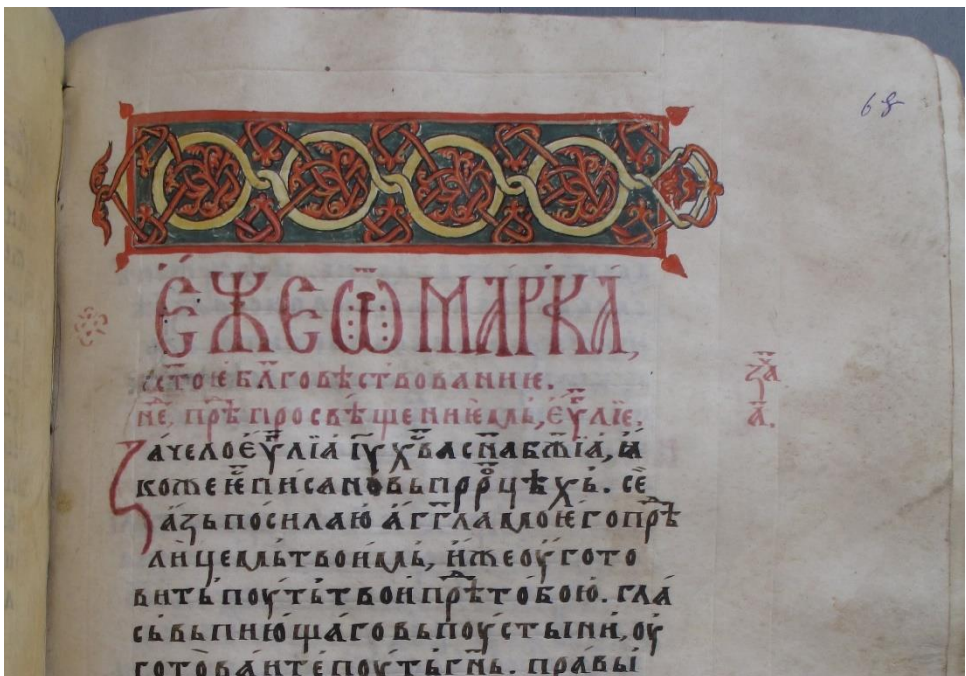 68
Е́ЖЕ Ѿ МА́РКА,
ст҃ое бл҃говѣствованиіе.
нє҃, прѣ просвѣщениіемь, Еѵ҃лїе,
за҃
а҃.
Зачело еѵ҃лїа і҃у х҃ва сн҃а бж҃їа, ꙗ
коже ѥ҃ писано вь прр҃оцѣхь. се
азь посилаю агг҃ла моѥго прѣ
лицемь твоимь, иже оугото
вить поуть твои прѣ тобою. гла
сь вьпиющаго вь поустыни, оу
готованте поуть гн҃ь. правы